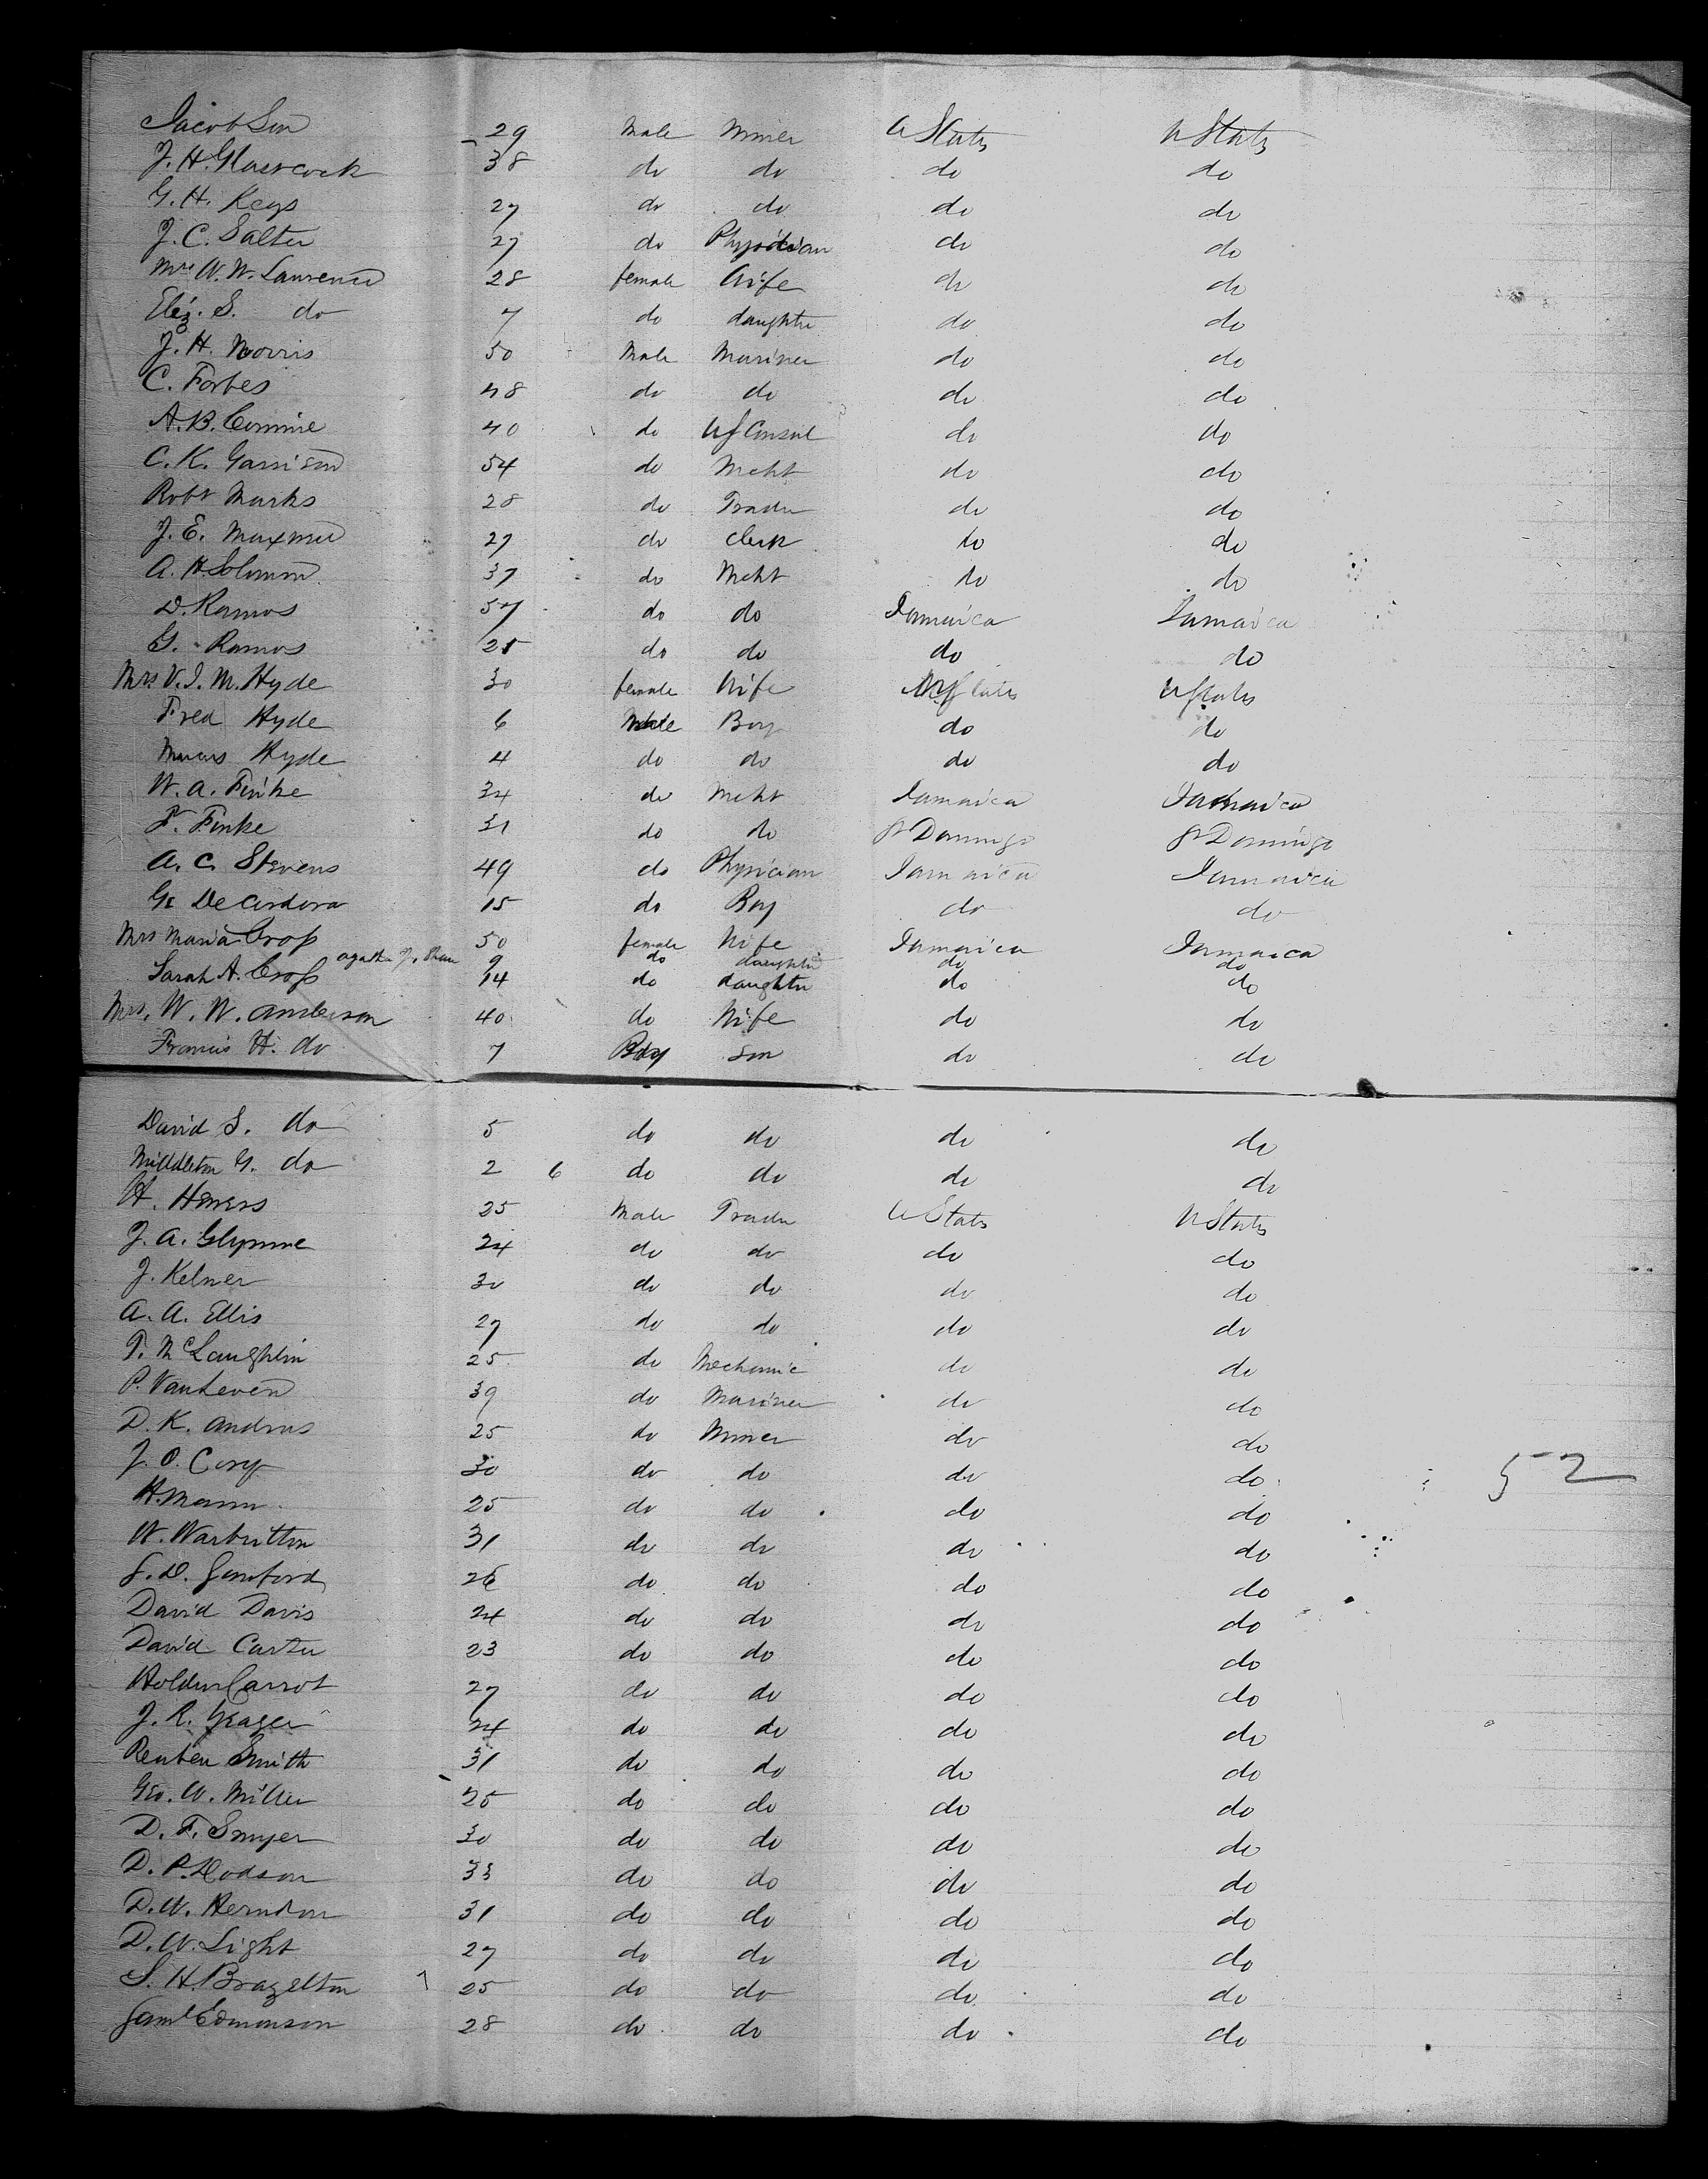 Jacob Sin 29 Male Miner U States U States
J. H. Glascock 38 do do do do
G. H. Keys 27 do do do do
J. C. Salter 27 do Physician do do
Mrs W. W. Lawrence 28 female Wife do do
Eliz. S. do 7 do daughter do do
J. H. Morris 50 Male Mariner do do
C. Forbes 48 do do do do
A. B. Corwine 40 do US Consul do do
C. K. Garrison 54 do Mcht do do
Robt Marks 28 do Trader do do
J. E. 27 do Clerk do do
A. H. Solomon 37 do Mcht do do
D. Ramos 57 do do Jamaica Jamaica
G. Ramos 25 do do do do
Mrs V. I. M. Hyde 30 female Wife U States U States
Fred Hyde 6 Male Boy do do
Marcus Hyde 4 do do do do
W. A. Finke 34 do Mcht Jamaica Jamaica
F. Finke 31 do do St Domingo St Domingo
A. C. Stevens 49 do Physician Jamaica Jamaica
G. DeCordova 15 do Boy do do
Mrs Maria Cross 50 female Wife Jamaica Jamaica
Agatha 9 do daughter do do
Sarah A. Cross 14 do daughter do do
Mrs. W. W. Anderson 40 do Wife do do
Francis H. do 7 Boy son do do
David S. do 5 do do do do
Middleton G. do 2 6 do do do do
H. 25 Male Trader U States U States
J. A. Glynne 24 do do do do
J. Kelner 30 do do do do
A. A. Ellis 27 do do do do
T. McLaughlin 25 do Mechanic do do
P. VanLeven 39 do Mariner do do
D. K. Andrus 25 do Miner do do
J. O. Cory 30 do do do do 52
H. Mann 25 do do do do
W. Warbritton 31 do do do do
S. D. 26 do do do do
David Davis 24 do do do do
David Carter 23 do do do do
Holden Carrot 27 do do do do
J. R. Yeager 24 do do do do
Reuben Smith 31 do do do do
Geo. W. Miller 25 do do do do
D. F. Smyer 30 do do do do
D. P. Dodson 33 do do do do
D. W. Herndon 31 do do do do
D. W. Light 27 do do do do
S. H. Brazelton 25 do do do do
Saml Edmonson 28 do do do do